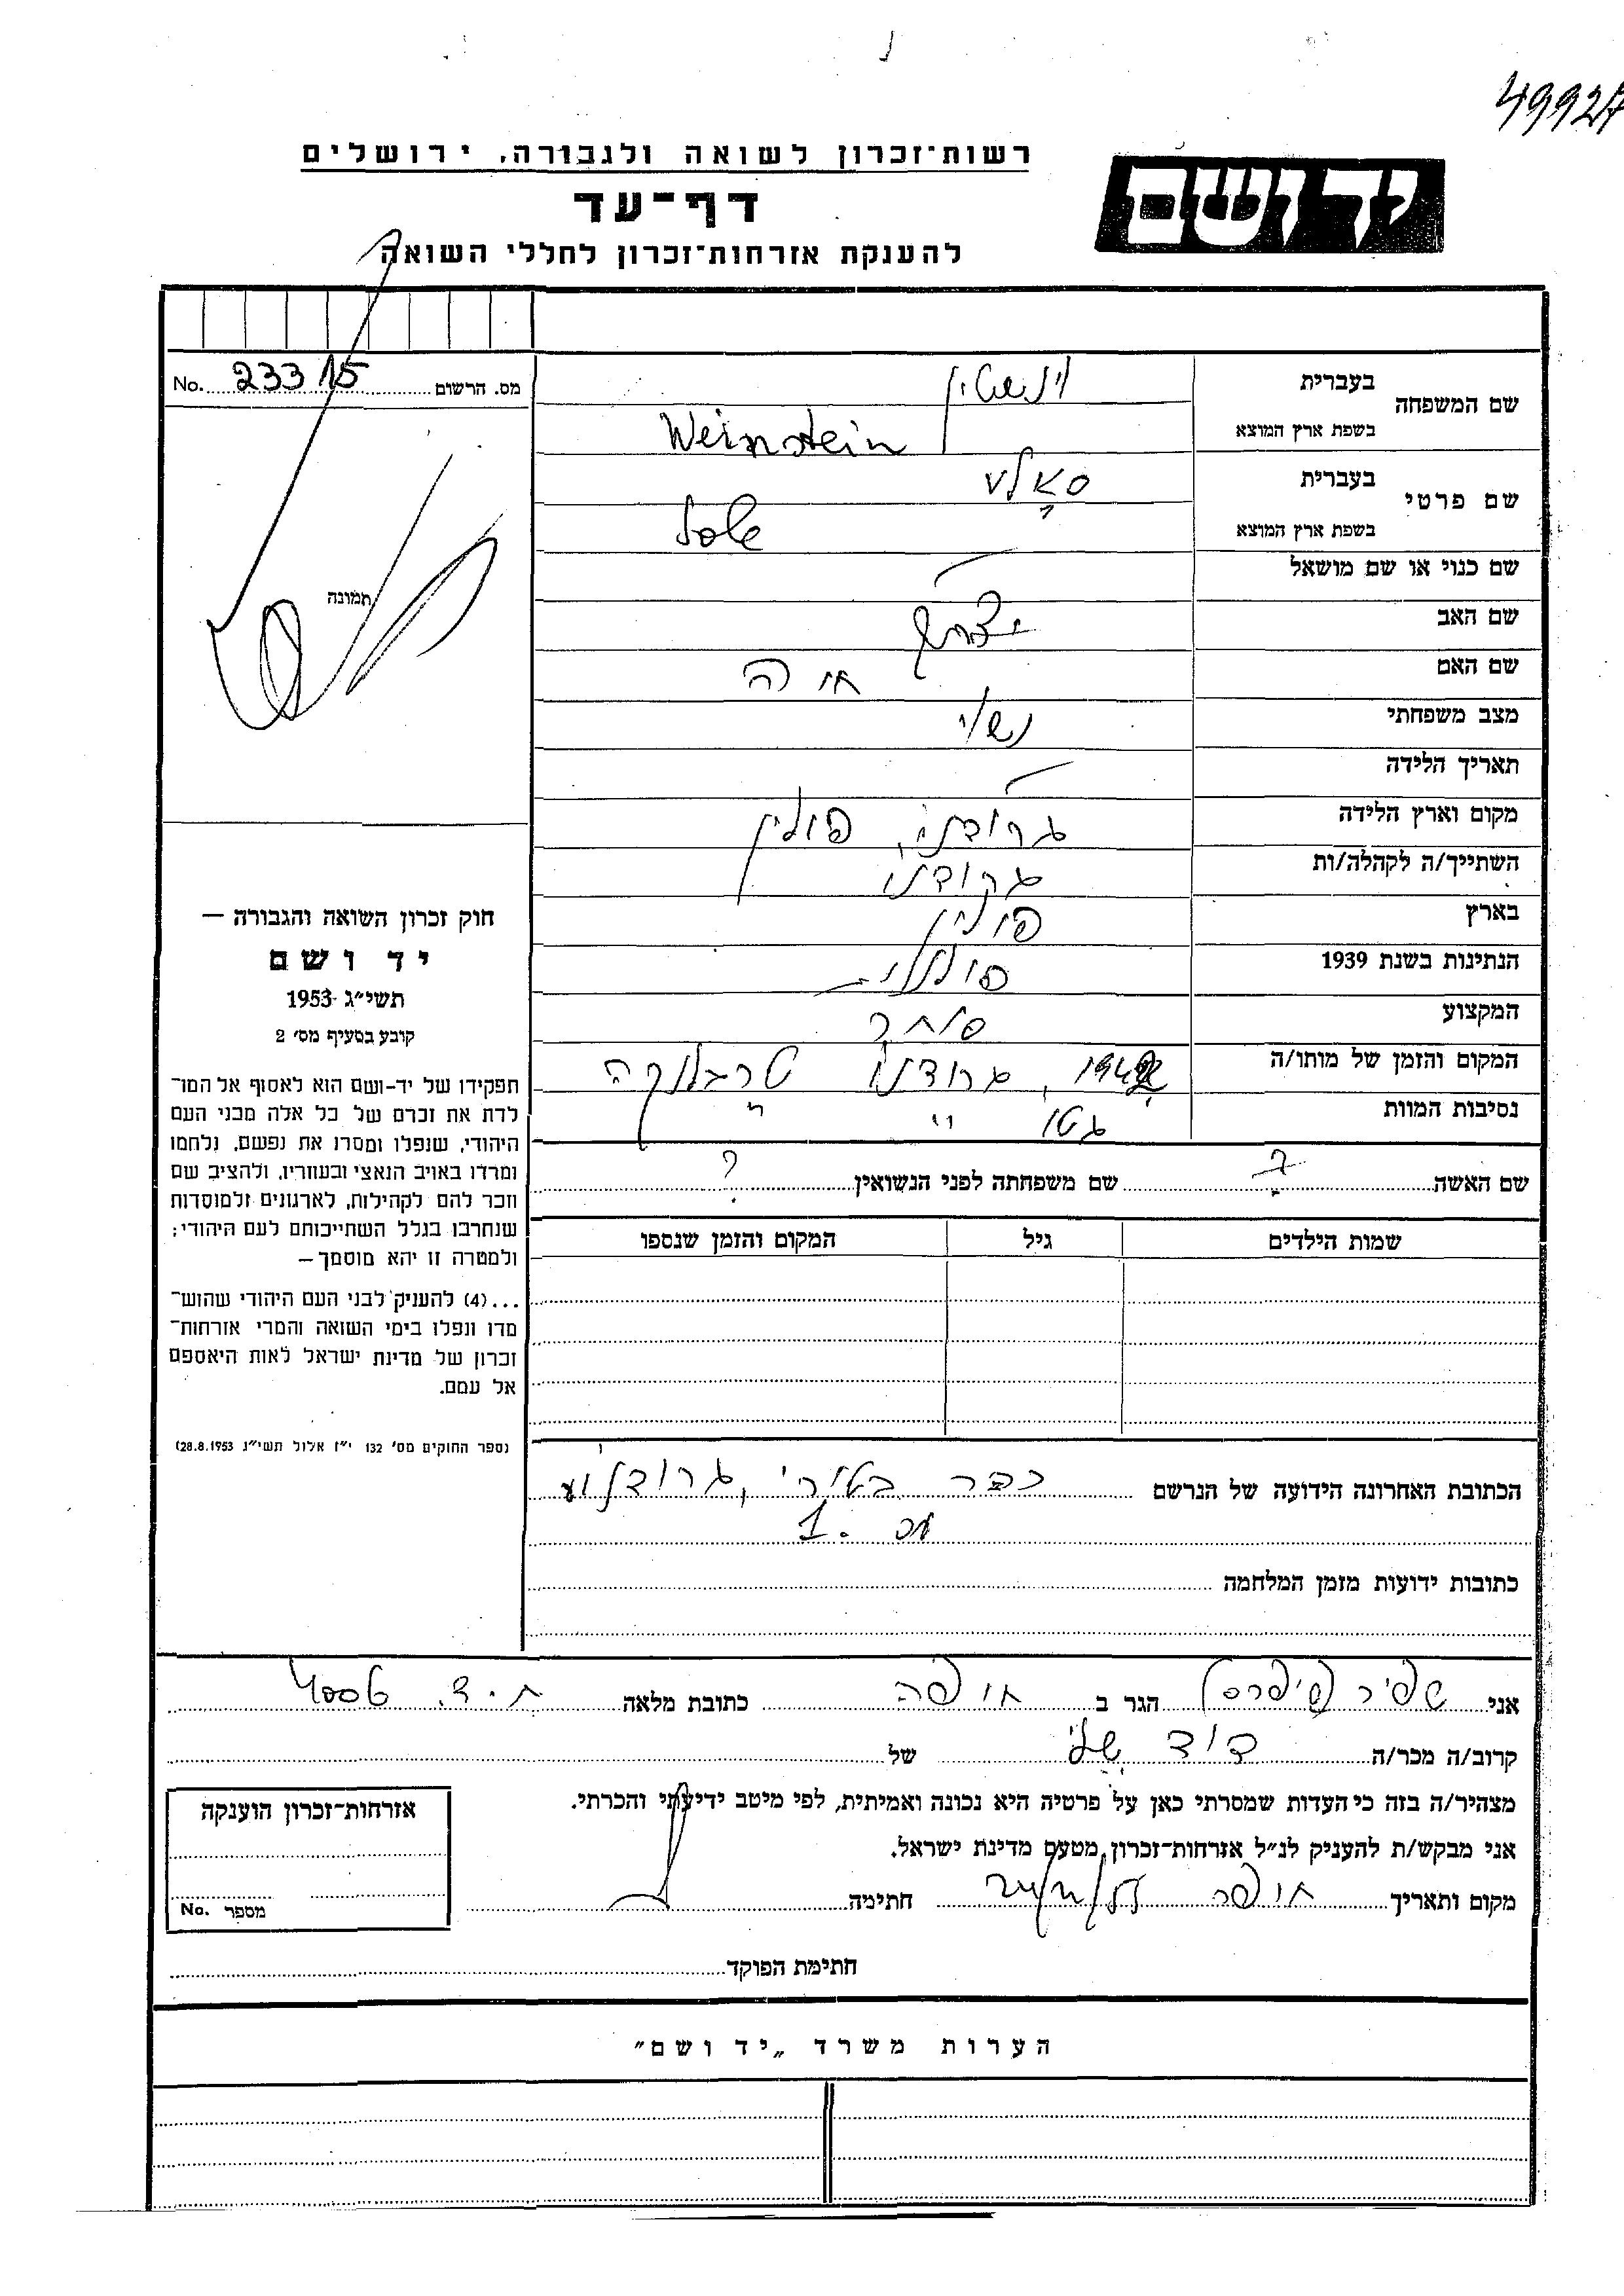 49927
רשות־זכרון לשואה ולגבורה, ירושלים
יד ושם
דף־עד
להענקת אזרחות־זכרון לחללי השואה
מס. הרשום No. 23315
תמונה
שם המשפחה
בעברית
וינשטיין
בשפת ארץ המוצא
Weinstein
שם פרטי
בעברית
בשפת ארץ המוצא
שם כנוי או שם מושאל
שם האב
שם האם חיה
מצב משפחתי נשוי
תאריך הלידה
מקום וארץ הלידה גרודנו, פולין
השתייך/ה לקהלה/ות גרודנו
בארץ פולין
הנתינות בשנת 1939 פולנית
המקצוע סוחר
המקום והזמן של מותו/ה 1942, גרודנו טרבלינקה
נסיבות המוות גטו
שם האשה ? שם משפחתה לפני הנשואין ?
שמות הילדים גיל המקום והזמן שנספו
חוק זכרון השואה והגבורה —
יד ושם
תשי״ג 1953
קובע בסעיף מס׳ 2
תפקידו של יד-ושם הוא לאסוף אל המו־
לדת את זכרם של כל אלה מבני העם
היהודי, שנפלו ומסרו את נפשם, נלחמו
ומרדו באויב הנאצי ובעוזריו, ולהציב שם
וזכר להם לקהילות, לארגונים ולמוסדות
שנחרבו בגלל השתייכותם לעם היהודי;
ולמטרה זו יהא מוסמך—
...(4) להעניק לבני העם היהודי שהוש־
מדו ונפלו בימי השואה והמרי אזרחות־
זכרון של מדינת ישראל לאות היאספם
אל עמם.
(ספר החוקים מס׳ 132 י״ז אלול תשי״ג 28.8.1953)
הכתובת האחרונה הידועה של הנרשם גרודנו
1.
כתובות ידועות מזמן המלחמה
אני שפיר הגר ב חיפה כתובת מלאה ת.ד.
קרוב/ה מכר/ה דוד שלי של
מצהיר/ה בזה כי העדות שמסרתי כאן על פרטיה היא נכונה ואמיתית, לפי מיטב ידיעתי והכרתי.
אני מבקש/ת להעניק לנ״ל אזרחות־זכרון מטעם מדינת ישראל.
מקום ותאריך חיפה חתימה
אזרחות־זכרון הוענקה
מספר No.
חתימת הפוקד
הערות משרד „יד ושם״